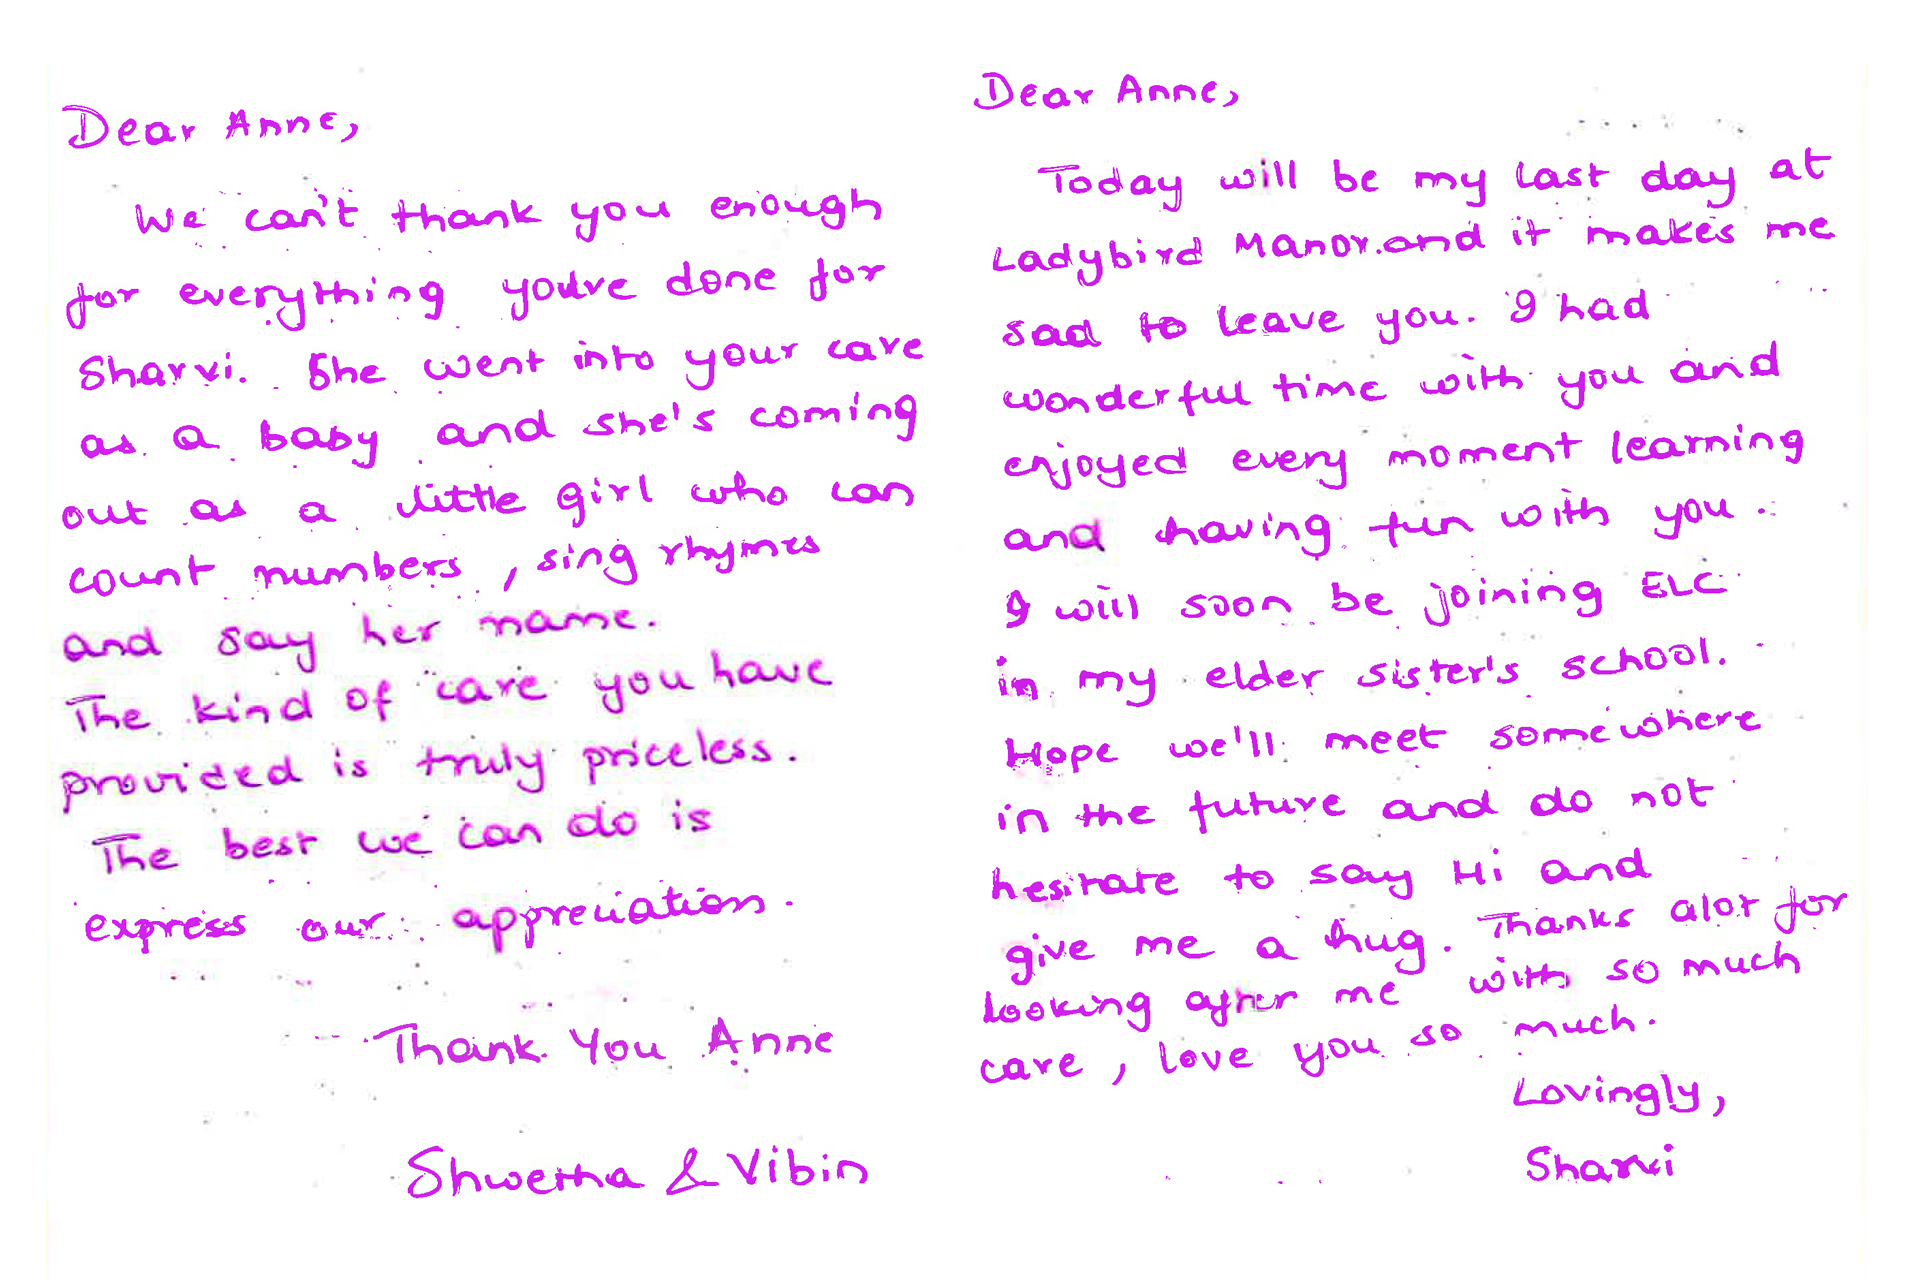 Dear Anne,
We can't thank you enough
for everything you've done for
Sharvi. She went into your care
as a baby and she's coming
out as a little girl who can
count numbers, sing rhymes
and say her name.
The kind of care you have
provided is truly priceless.
The best we can do is
express our appreciation.
Thank You Anne
Shwetha & Vibin
Dear Anne,
Today will be my last day at
Ladybird Manor.and it makes me
sad to leave you. I had
wonderful time with you and
enjoyed every moment learning
and having fun with you.
I will soon be joining ELC
in my elder sister's school.
Hope we'll meet somewhere
in the future and do not
hesitate to say Hi and
give me a hug. Thanks alot for
looking after me with so much
care, love you so much.
Lovingly,
Sharvi